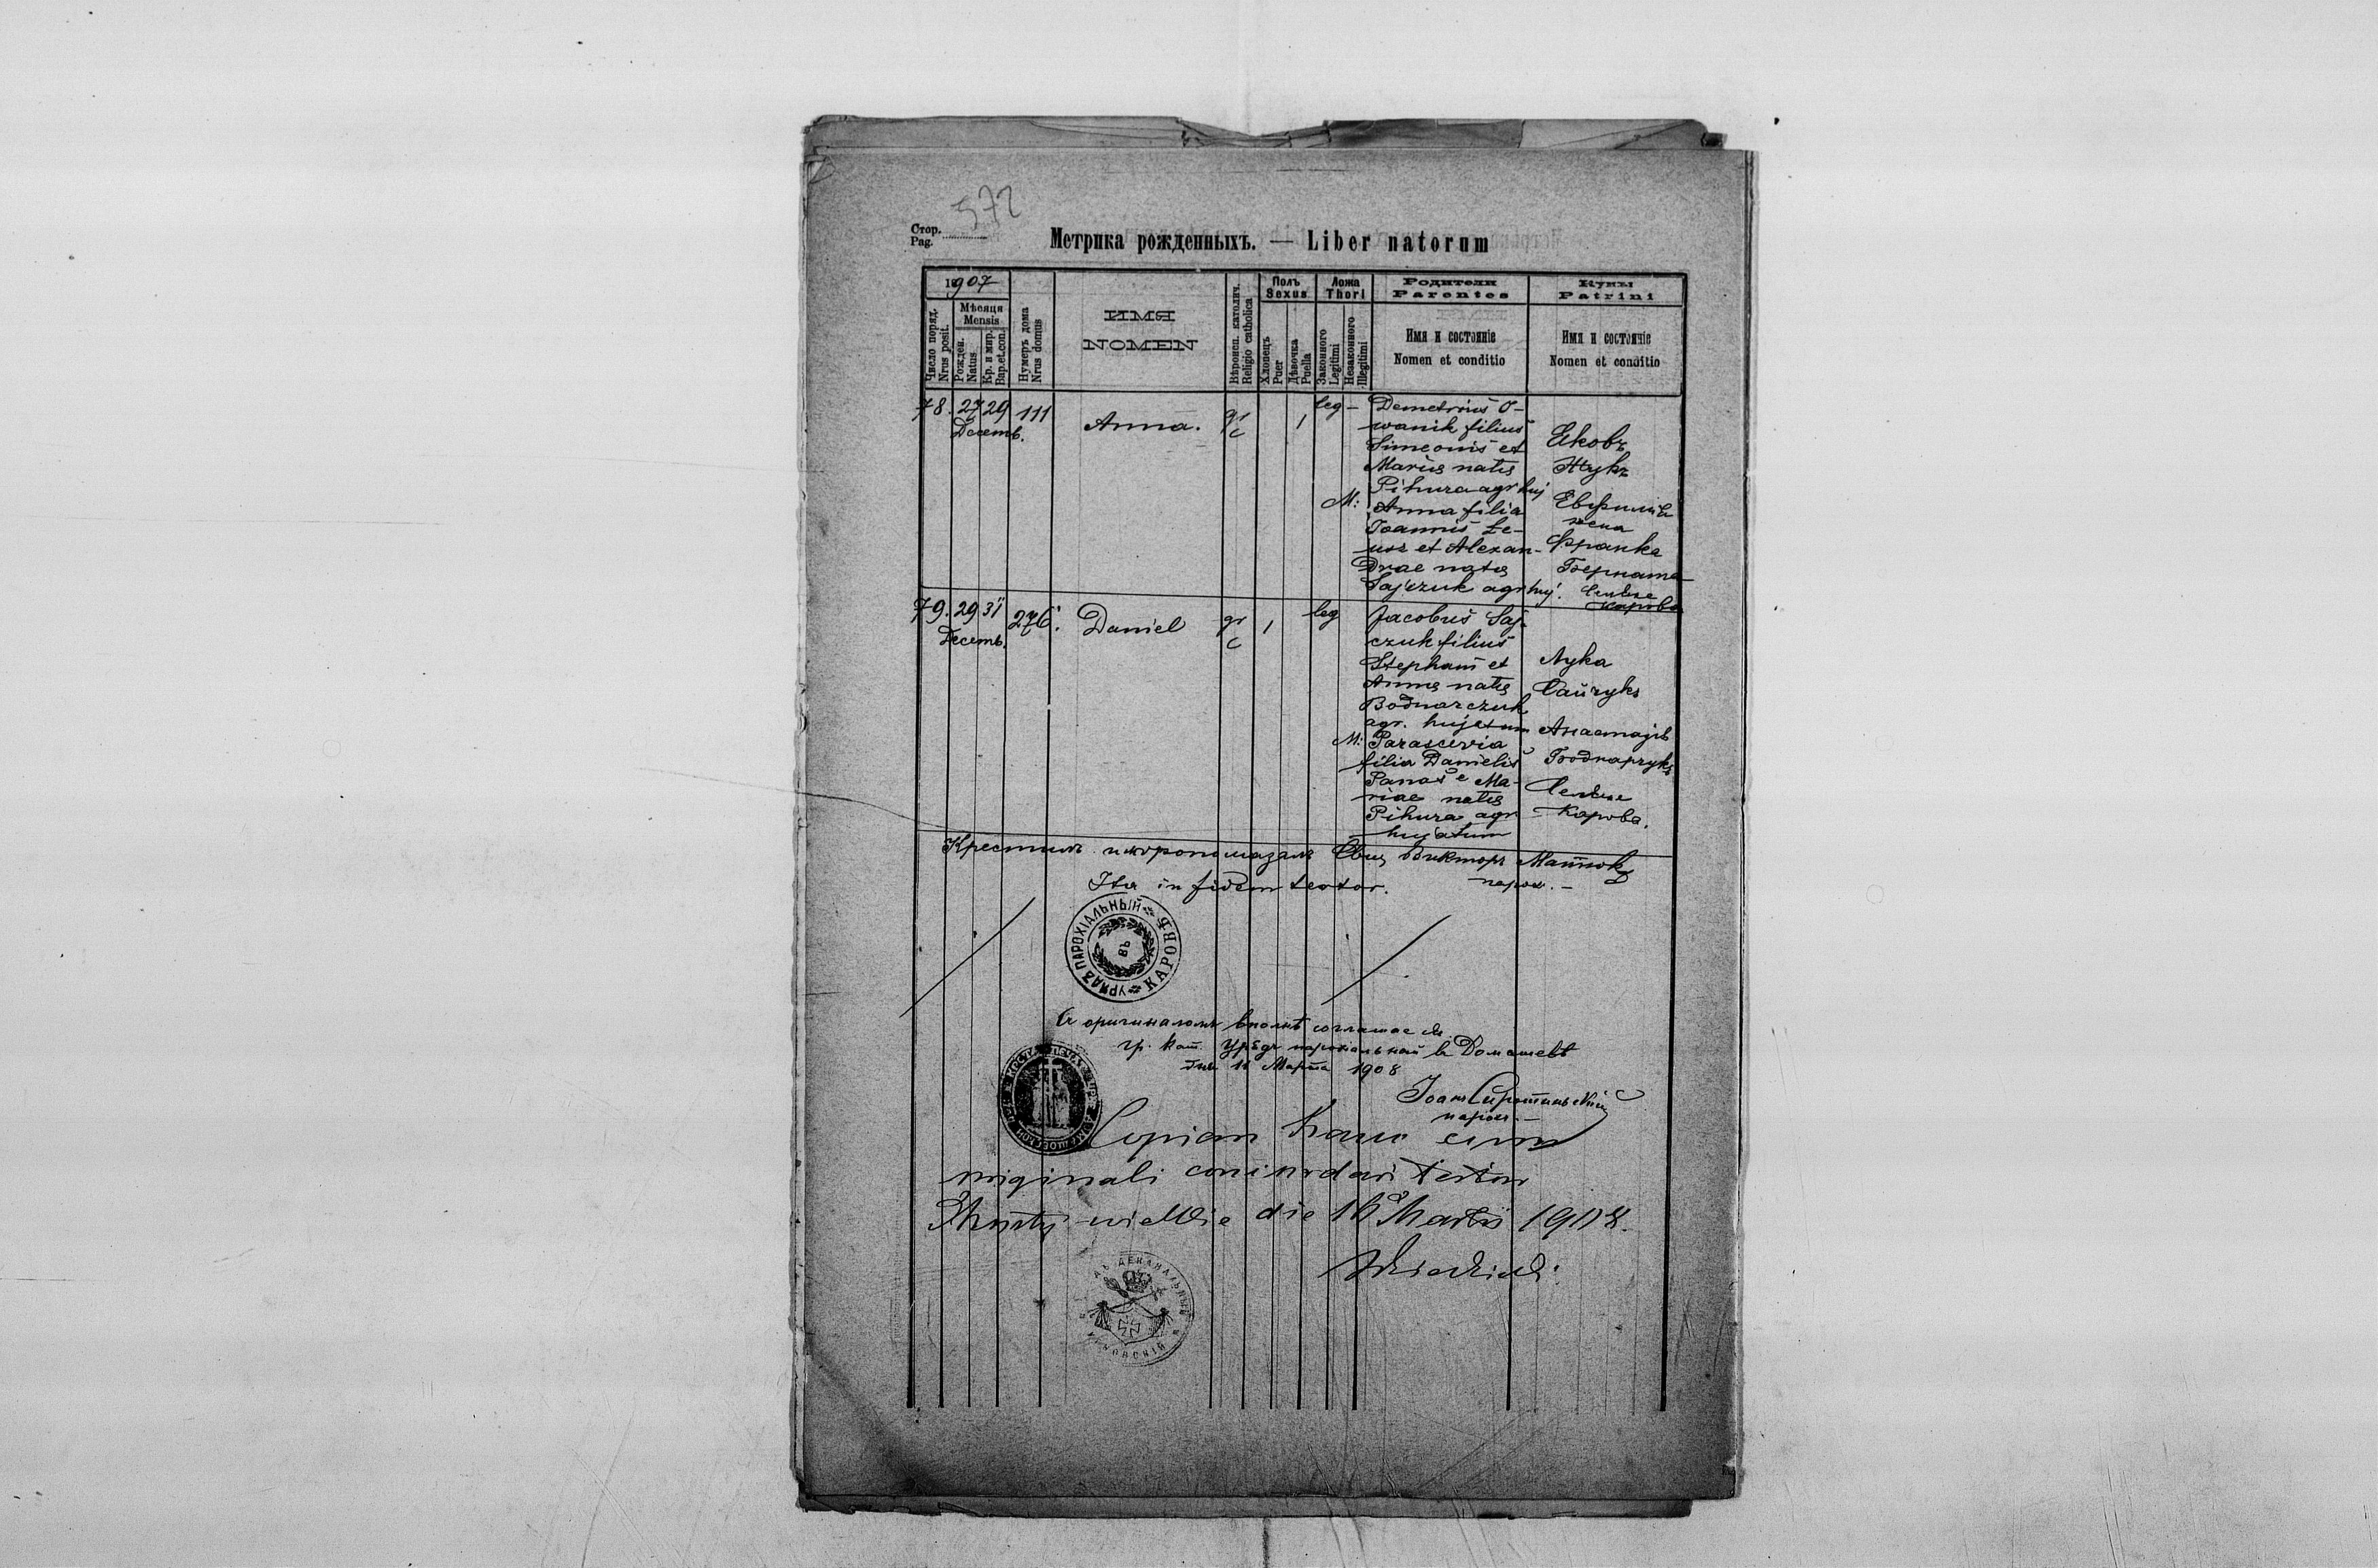 572
Стор.
Pag.
Метрика рожденныхъ. — Liber natorum
18907
Число поряд.
Nrus posit.
Мѣсяця
Mensis
Рожден.
Natus
Кр. и мир.
Bap.et.con.
Нумеръ дома
Nrus domus
ИМЯ
NOMEN
Вѣроисп. католич.
Religio catholica
Полъ
Sexus
Хлопецъ
Puer
Дѣвочка
Puella
Ложа
Thori
Законного
Legitimi
Незаконного
Illegitimi
Родители
Parentes
Имя и состояніе
Nomen et conditio
Кумы
Patrini
Имя и состояніе
Nomen et conditio
78. 27 29 111 Anna. gr c 1 leg —
Decemb.
Demetrius O-
wanik filius
Simeonis et
Mariæ natæ
Pihura agr huj
M: Anna filia
Joannis Le-
us et Alexan-
drae natæ
Sajczuk agr huj.
Яковъ
Жукъ
жена
Франка
79. 29 31 276. Daniel gr c 1 leg
Decemb.
Jacobus Saj-
czuk filius
Stephani et
Annæ natæ
Bodnarczuk
agr. hujatum
M: Parascevia
filia Danielis
Panas e Ma-
riae natæ
Pihura agr
hujatum
Лука
Сайчукъ
Анастазія
Боднарчукъ
Карова.
Крестилъ и миропомазалъ Викторъ Матюкъ
парох. —
Ita in fidem testor.
УРЯДЪ ПАРОХІАЛЬНЫЙ
ВЪ
КАРОВѢ
Съ оригиналомъ вполнѣ
гр. кат. Урядъ парохіальный въ Домашевѣ
дня 11 Марта 1908
Іоан
парох. —
Copiam hanc cum
originali concordari testor
die 16 Martii 1908.
ДЕКАНАЛЬНЫЙ